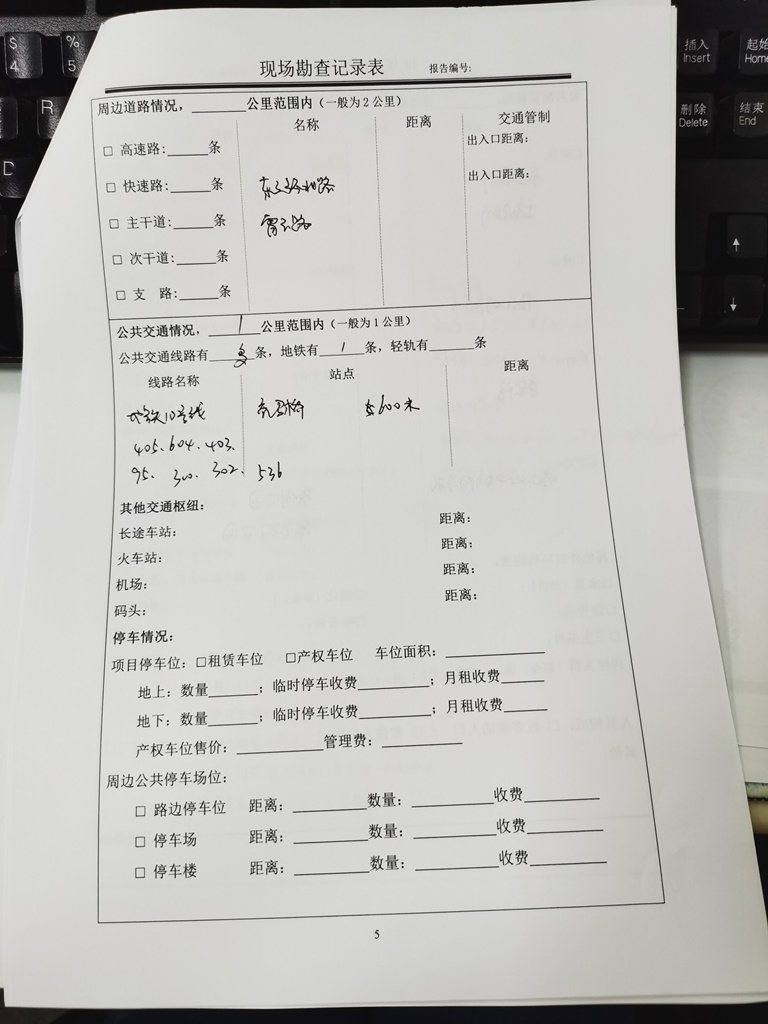 $
4
%
5
R
D
插入
Insert
起始
Home
删除
Delete
结束
End
↑
↓
现场勘查记录表 报告编号:
周边道路情况，______公里范围内（一般为2公里）
名称 距离 交通管制
□ 高速路:_____条 出入口距离：
□ 快速路:_____条 东三环北路 出入口距离：
□ 主干道:_____条 霄云路
□ 次干道:_____条
□ 支 路:_____条
公共交通情况，1公里范围内（一般为1公里）
公共交通线路有多条，地铁有1条，轻轨有_____条
线路名称 站点 距离
地铁10号线 亮马桥 约600米
405、604、403、
95、300、302、536
其他交通枢纽：
长途车站： 距离：
火车站： 距离：
机场： 距离：
码头： 距离：
停车情况：
项目停车位：□租赁车位 □产权车位 车位面积：____________
地上：数量______；临时停车收费________；月租收费_____
地下：数量______；临时停车收费________；月租收费_____
产权车位售价：__________管理费：_________
周边公共停车场位：
□ 路边停车位 距离：________数量：_________收费________
□ 停车场 距离：________数量：_________收费________
□ 停车楼 距离：________数量：_________收费________
5